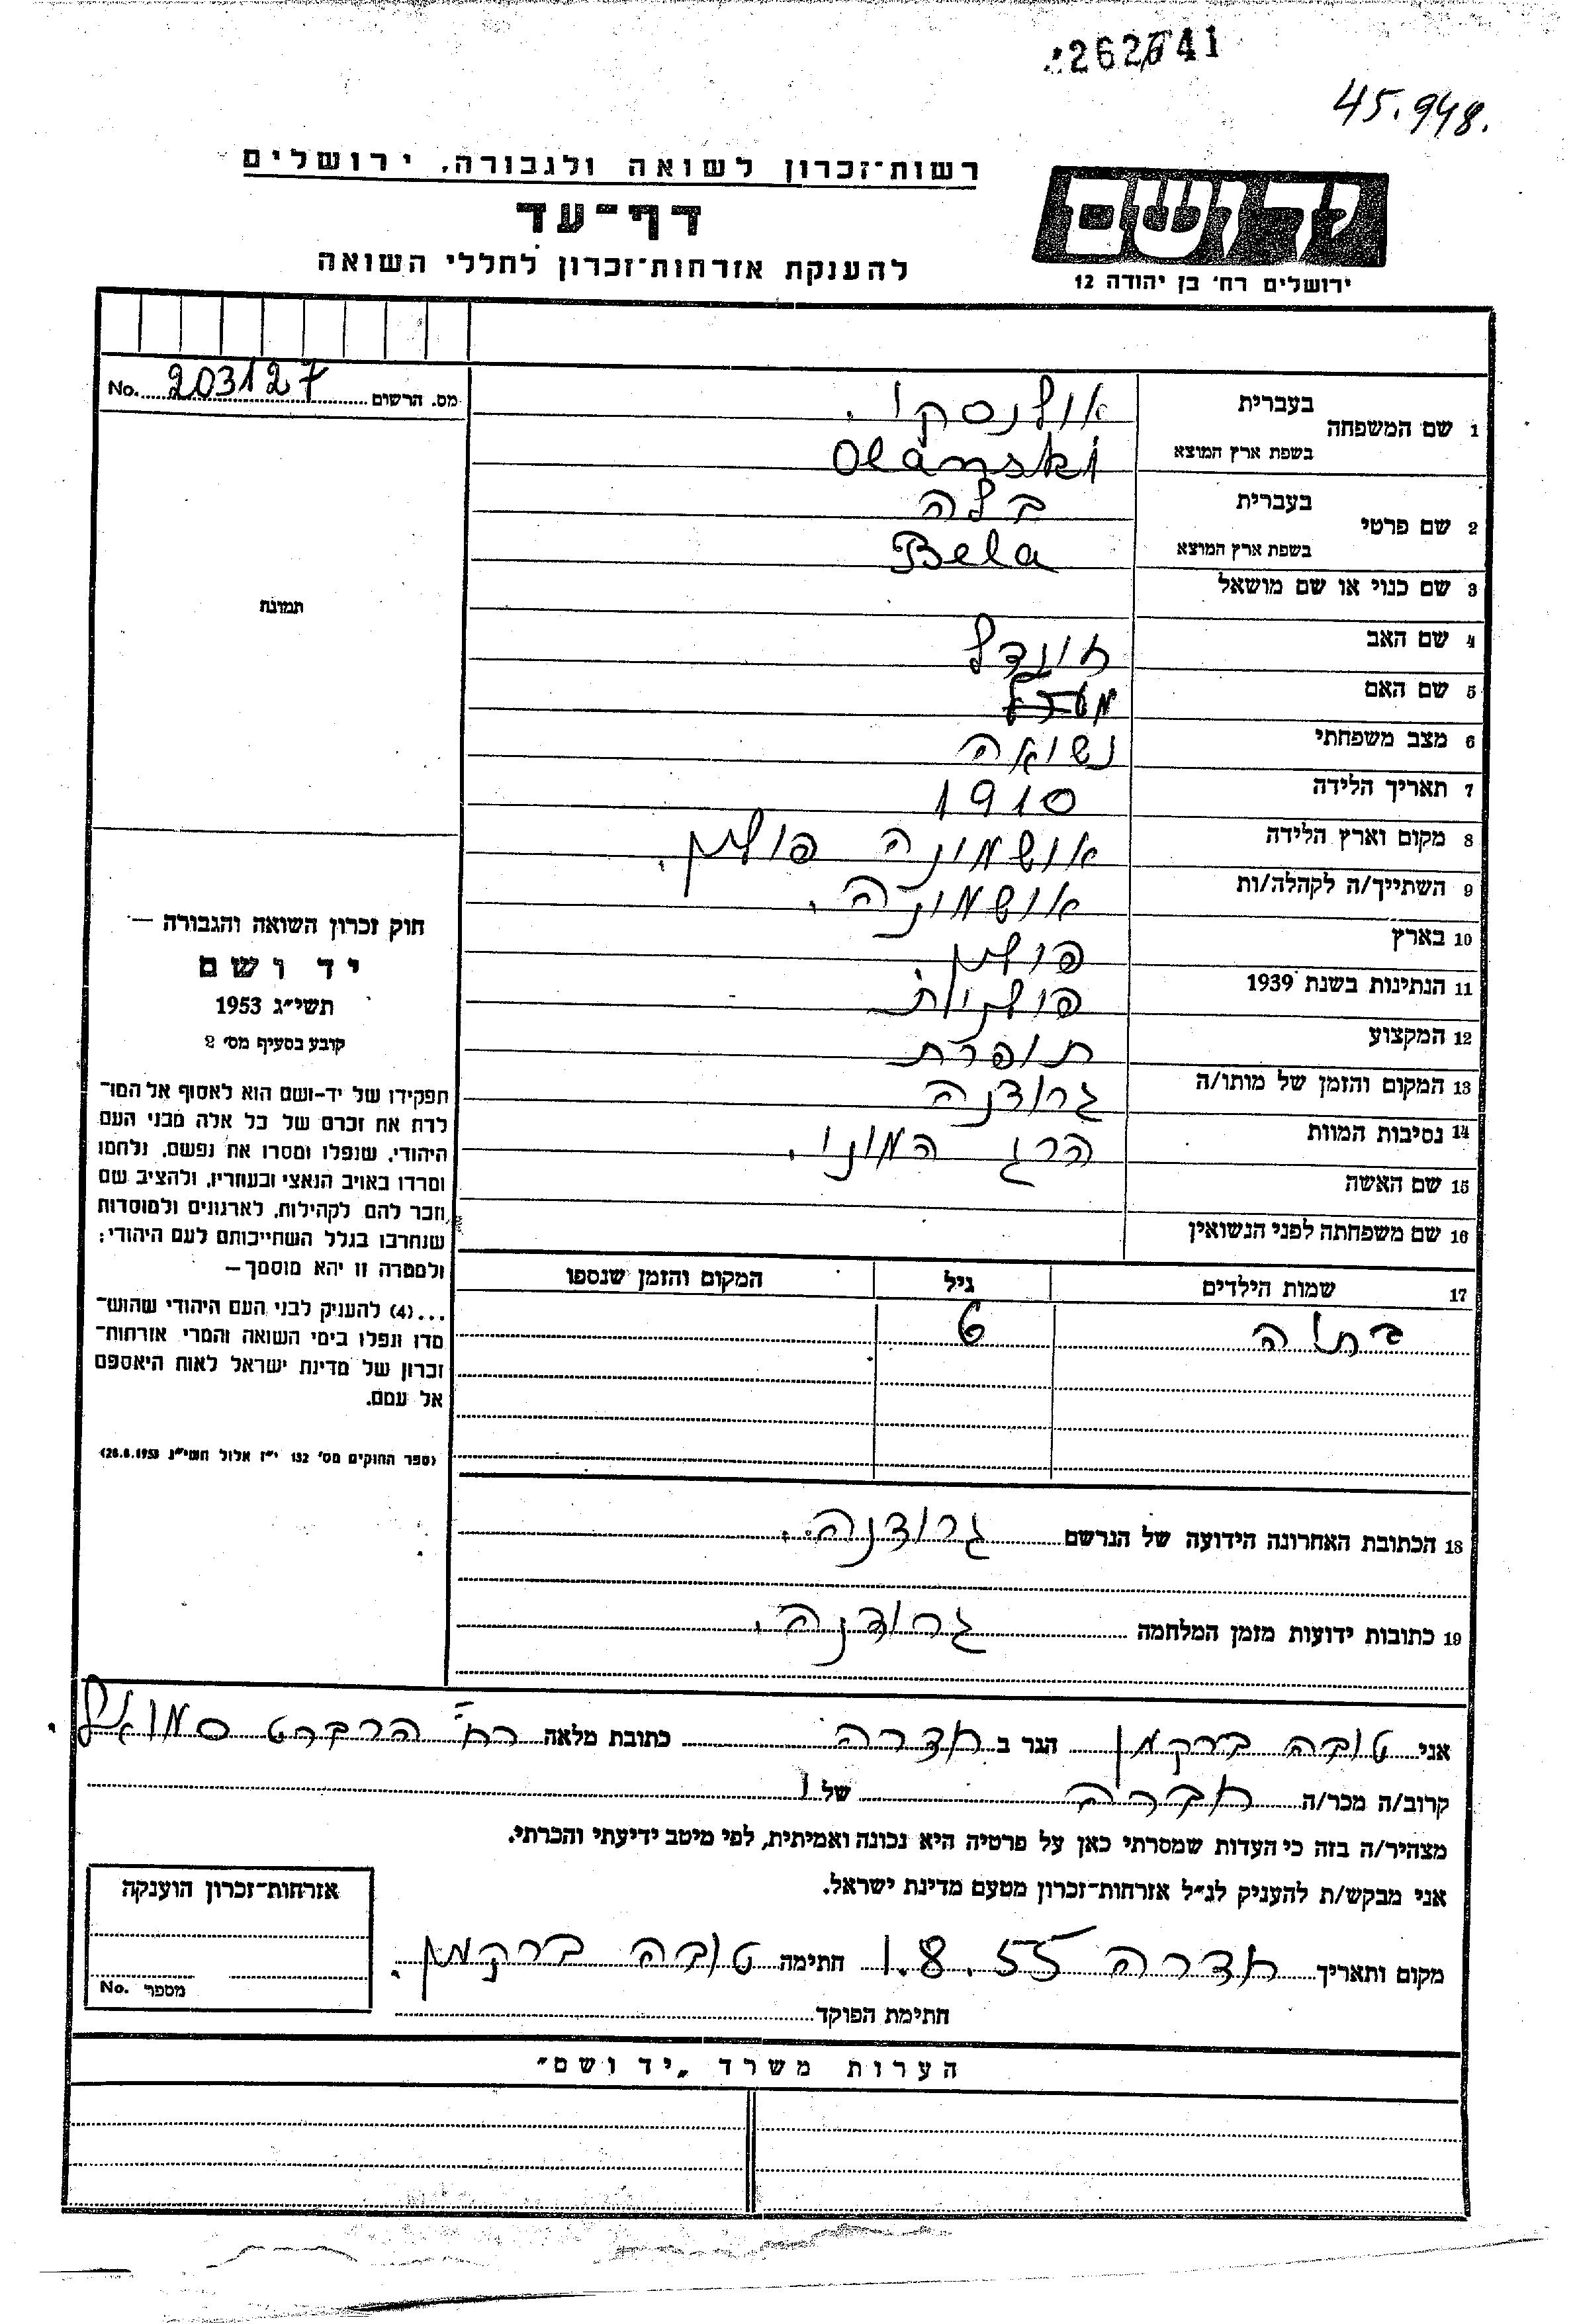 262641
45.948.
רשות־זכרון לשואה ולגבורה, ירושלים
יד ושם
דף־עד
להענקת אזרחות־זכרון לחללי השואה
ירושלים רח' בן יהודה 12
מס. הרשום 203127 No.
1 שם המשפחה בעברית אולנסקי.
בשפת ארץ המוצא Olanski
2 שם פרטי בעברית בלה
בשפת ארץ המוצא Bela
3 שם כנוי או שם מושאל
תמונה
4 שם האב
5 שם האם
6 מצב משפחתי נשואה
7 תאריך הלידה 1910
8 מקום וארץ הלידה אושמונה פולין.
9 השתייך/ה לקהלה/ות אושמונה.
10 בארץ פולין.
11 הנתינות בשנת 1939 פולנית
12 המקצוע תופרת
13 המקום והזמן של מותו/ה גרודנה
14 נסיבות המוות הרג המוני.
15 שם האשה
16 שם משפחתה לפני הנשואין
חוק זכרון השואה והגבורה —
יד ושם
תשי"ג 1953
קובע בסעיף מס' 2
תפקידו של יד-ושם הוא לאסוף אל המו־
לדת את זכרם של כל אלה מבני העם
היהודי, שנפלו ומסרו את נפשם, נלחמו
ומרדו באויב הנאצי ובעוזריו, ולהציב שם
וזכר להם לקהילות, לארגונים ולמוסדות
שנחרבו בגלל השתייכותם לעם היהודי;
ולמטרה זו יהא מוסמך—
...(4) להעניק לבני העם היהודי שהוש־
מדו ונפלו בימי השואה והמרי אזרחות־
זכרון של מדינת ישראל לאות היאספם
אל עמם.
(ספר החוקים מס' 132 י"ז אלול תשי"ג 28.8.1953)
17 שמות הילדים גיל המקום והזמן שנספו
בתיה 6
18 הכתובת האחרונה הידועה של הנרשם גרודנה.
19 כתובות ידועות מזמן המלחמה גרודנה.
אני טובה ברקמן הגר ב חדרה כתובת מלאה רח' הרברט סמואל.
קרוב/ה מכר/ה חברה של
מצהיר/ה בזה כי העדות שמסרתי כאן על פרטיה היא נכונה ואמיתית, לפי מיטב ידיעתי והכרתי.
אני מבקש/ת להעניק לנ"ל אזרחות־זכרון מטעם מדינת ישראל.
מקום ותאריך חדרה 1.8.55 חתימה טובה ברקמן.
חתימת הפוקד
אזרחות־זכרון הוענקה
מספר No.
הערות משרד „יד ושם"